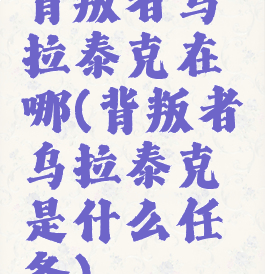 背叛者乌
拉泰克在
哪(背叛者
乌拉泰克
是什么任
务)